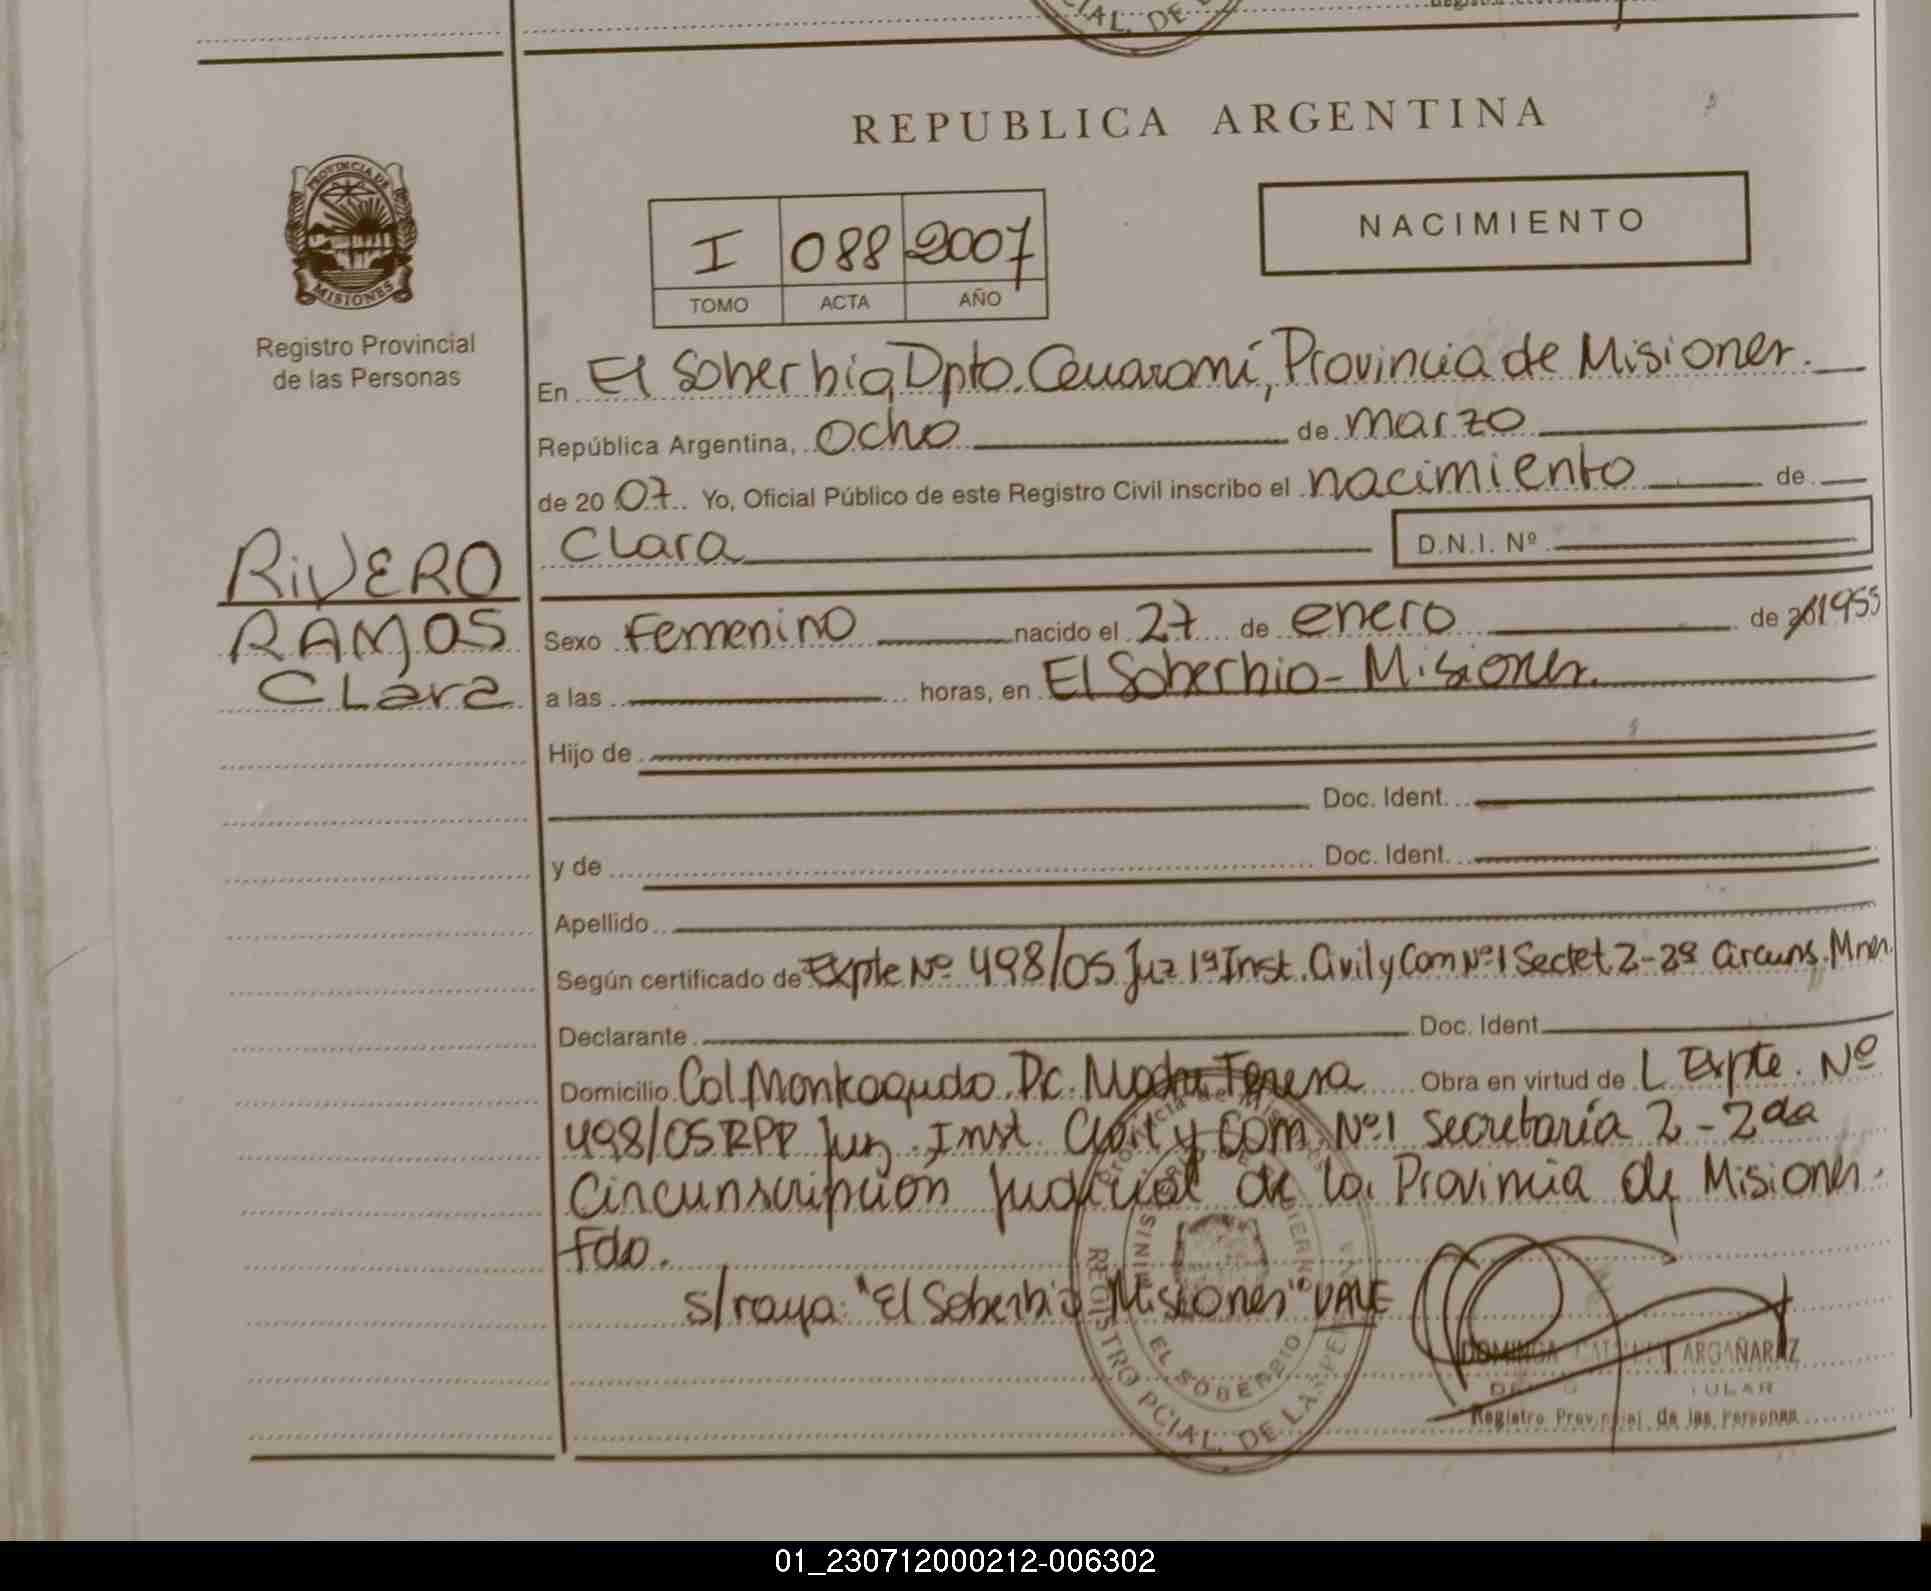 CIAL. DE
REPUBLICA ARGENTINA
PROVINCIA DE
MISIONES
Registro Provincial
de las Personas
I 088 2007
TOMO ACTA AÑO
NACIMIENTO
En El Soberbio, Dpto. Guaraní, Provincia de Misiones.
República Argentina, ocho de marzo
de 2007. Yo, Oficial Público de este Registro Civil inscribo el nacimiento de
Clara D.N.I. Nº
RIVERO
RAMOS
Clara
Sexo Femenino nacido el 27 de enero de 1955
a las horas, en El Soberbio - Misiones.
Hijo de
Doc. Ident.
y de Doc. Ident.
Apellido
Según certificado de Expte Nº 498/05 Juz 1ª Inst. Civil y Com Nº1 Sectet 2 - 2ª Circuns. Mnes.
Declarante Doc. Ident.
Domicilio Col Monteagudo Pc. Madre Teresa Obra en virtud de L Expte. Nº
498/05 RPP Juz. Inst. Civil y Com. Nº1 Secretaría 2 - 2da
Circunscripción Judicial de la Provincia de Misiones.
Fdo.
s/raya: "El Soberbio Misiones" VALE
Provincia de Misiones
EL SOBERBIO
REGISTRO PCIAL. DE LAS PE
DOMINGA ARGAÑARAZ
Registro Provincial de las Personas
01_230712000212-006302